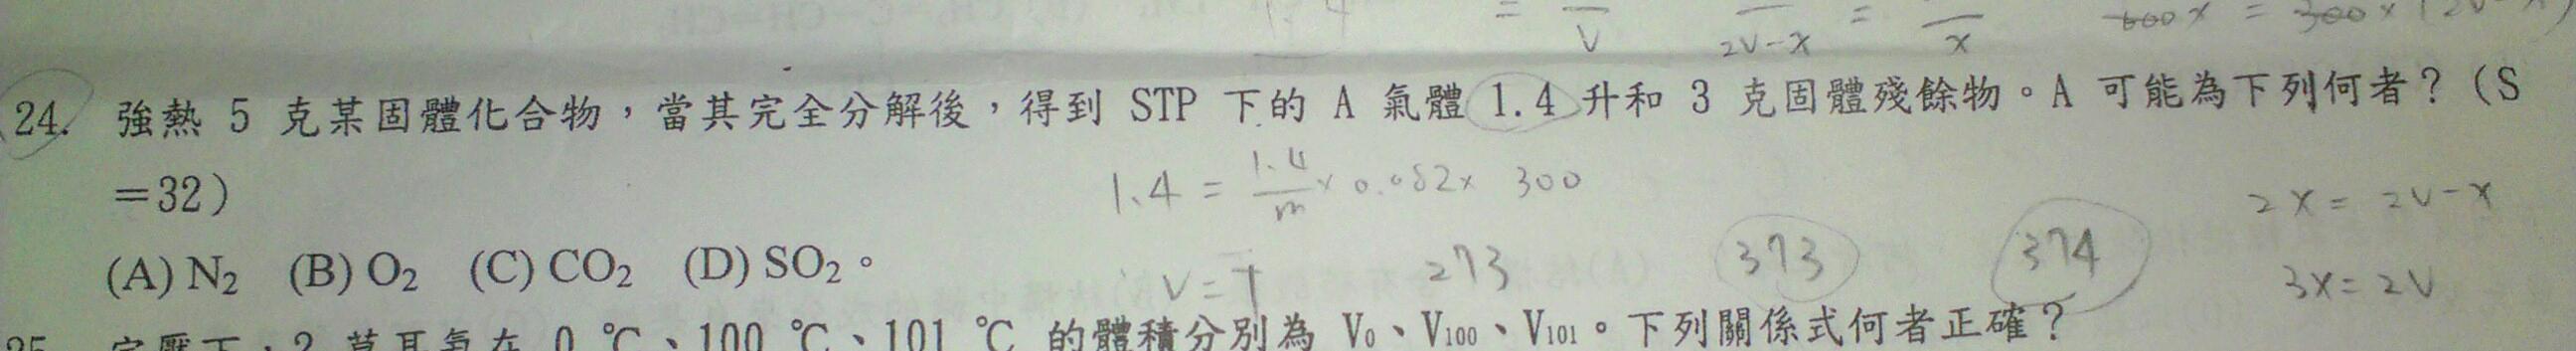 = V 2V-x = x 600x = 300x(2V-x)
24. 強熱 5 克某固體化合物，當其完全分解後，得到 STP 下的 A 氣體 1.4 升和 3 克固體殘餘物。A 可能為下列何者？（S
＝32）
1.4 = 1.4/m x 0.082x 300
2x = 2V-x
(A) N₂ (B) O₂ (C) CO₂ (D) SO₂。
V=T 273 373 374
3x=2V
25. 定壓下，2 莫耳氣在 0 ℃、100 ℃、101 ℃ 的體積分別為 V₀、V₁₀₀、V₁₀₁。下列關係式何者正確？